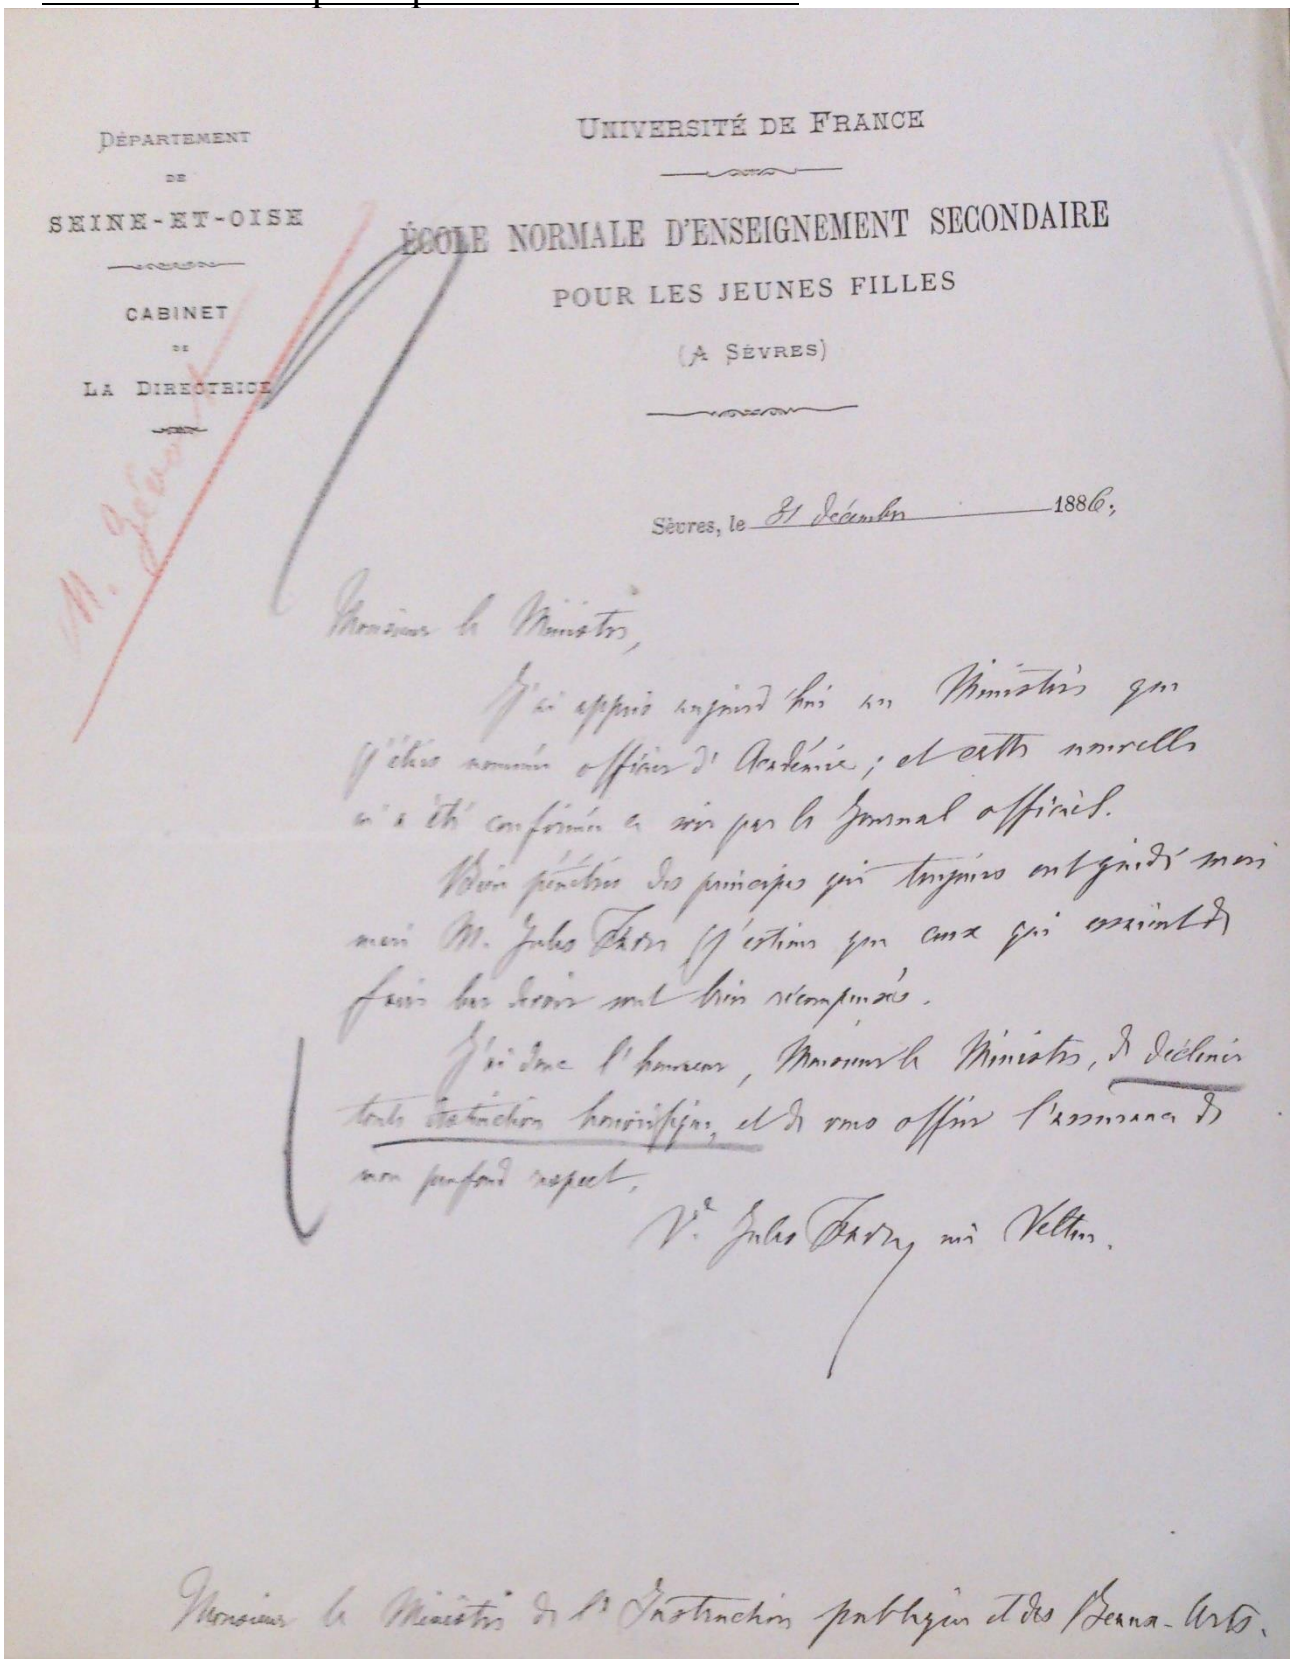 DÉPARTEMENT
DE
SEINE-ET-OISE
CABINET
DE
LA DIRECTRICE
UNIVERSITÉ DE FRANCE
ÉCOLE NORMALE D'ENSEIGNEMENT SECONDAIRE
POUR LES JEUNES FILLES
(A SÈVRES)
Sèvres, le 31 décembre 1886,
Monsieur le Ministre,
J'ai appris aujourd'hui au Ministère que
j'étais nommée officier d'Académie ; et cette nouvelle
m'a été confirmée ce soir par le Journal officiel.
Bien pénétrée des principes qui toujours ont guidé mon
mari M. Jules Favre j'estime que ceux qui essaient de
faire leur devoir sont bien récompensés.
J'ai donc l'honneur, Monsieur le Ministre, de décliner
toute distinction honorifique, et de vous offrir l'assurance de
mon profond respect.
Vᵉ Jules Favre, née Velten.
Monsieur le Ministre de l'Instruction publique et des Beaux-Arts.